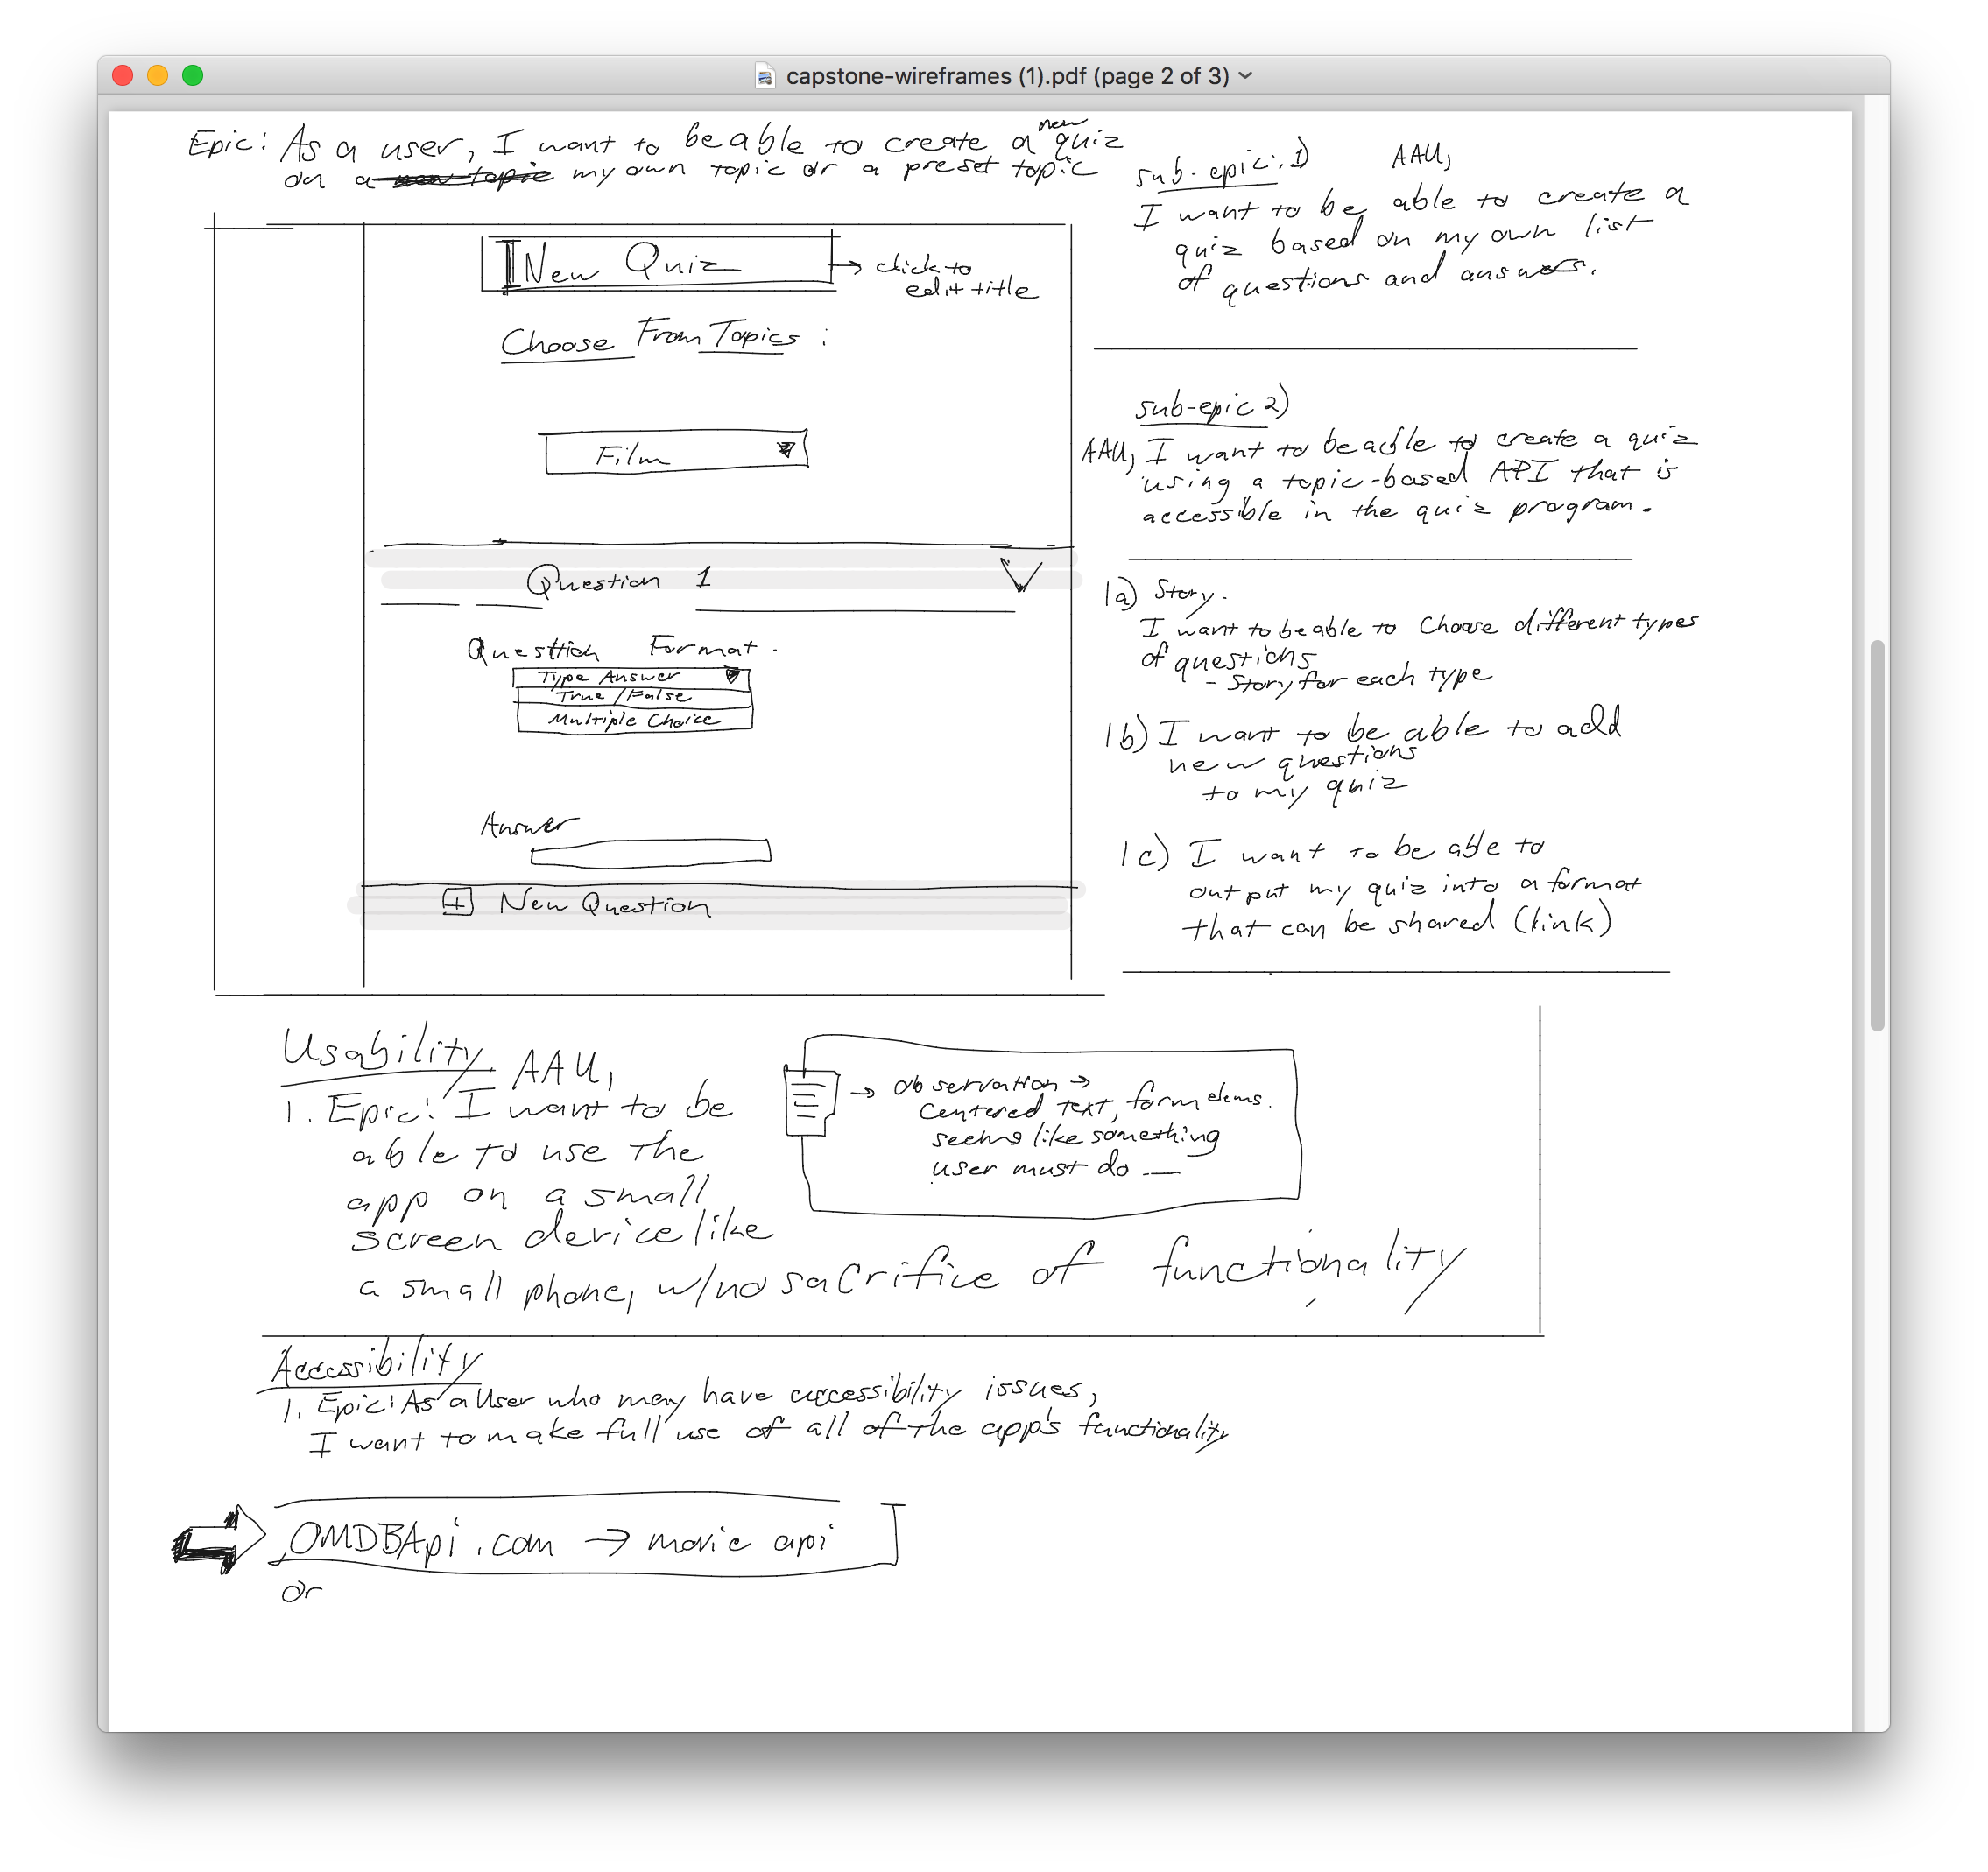 capstone-wireframes (1).pdf (page 2 of 3)
Epic: As a user, I want to be able to create a new quiz
on a new topic my own topic or a preset topic
New Quiz
→ click to
edit title
Choose From Topics :
Film
Question 1
Question Format.
Type Answer
True/False
Multiple Choice
Answer
+ New Question
sub-epic: 1) AAU,
I want to be able to create a
quiz based on my own list
of questions and answers.
sub-epic 2)
AAU, I want to be able to create a quiz
using a topic-based API that is
accessible in the quiz program.
1a) Story.
I want to be able to choose different types
of questions
- Story for each type
1b) I want to be able to add
new questions
to my quiz
1c) I want to be able to
output my quiz into a format
that can be shared (link)
Usability AAU,
1. Epic: I want to be
able to use the
app on a small
screen device like
a small phone, w/no sacrifice of functionality
→ observation →
centered text, form elems.
seems like something
user must do —
Accessibility
1. Epic: As a User who may have accessibility issues,
I want to make full use of all of the app's functionality
OMDBApi.com → movie api
or